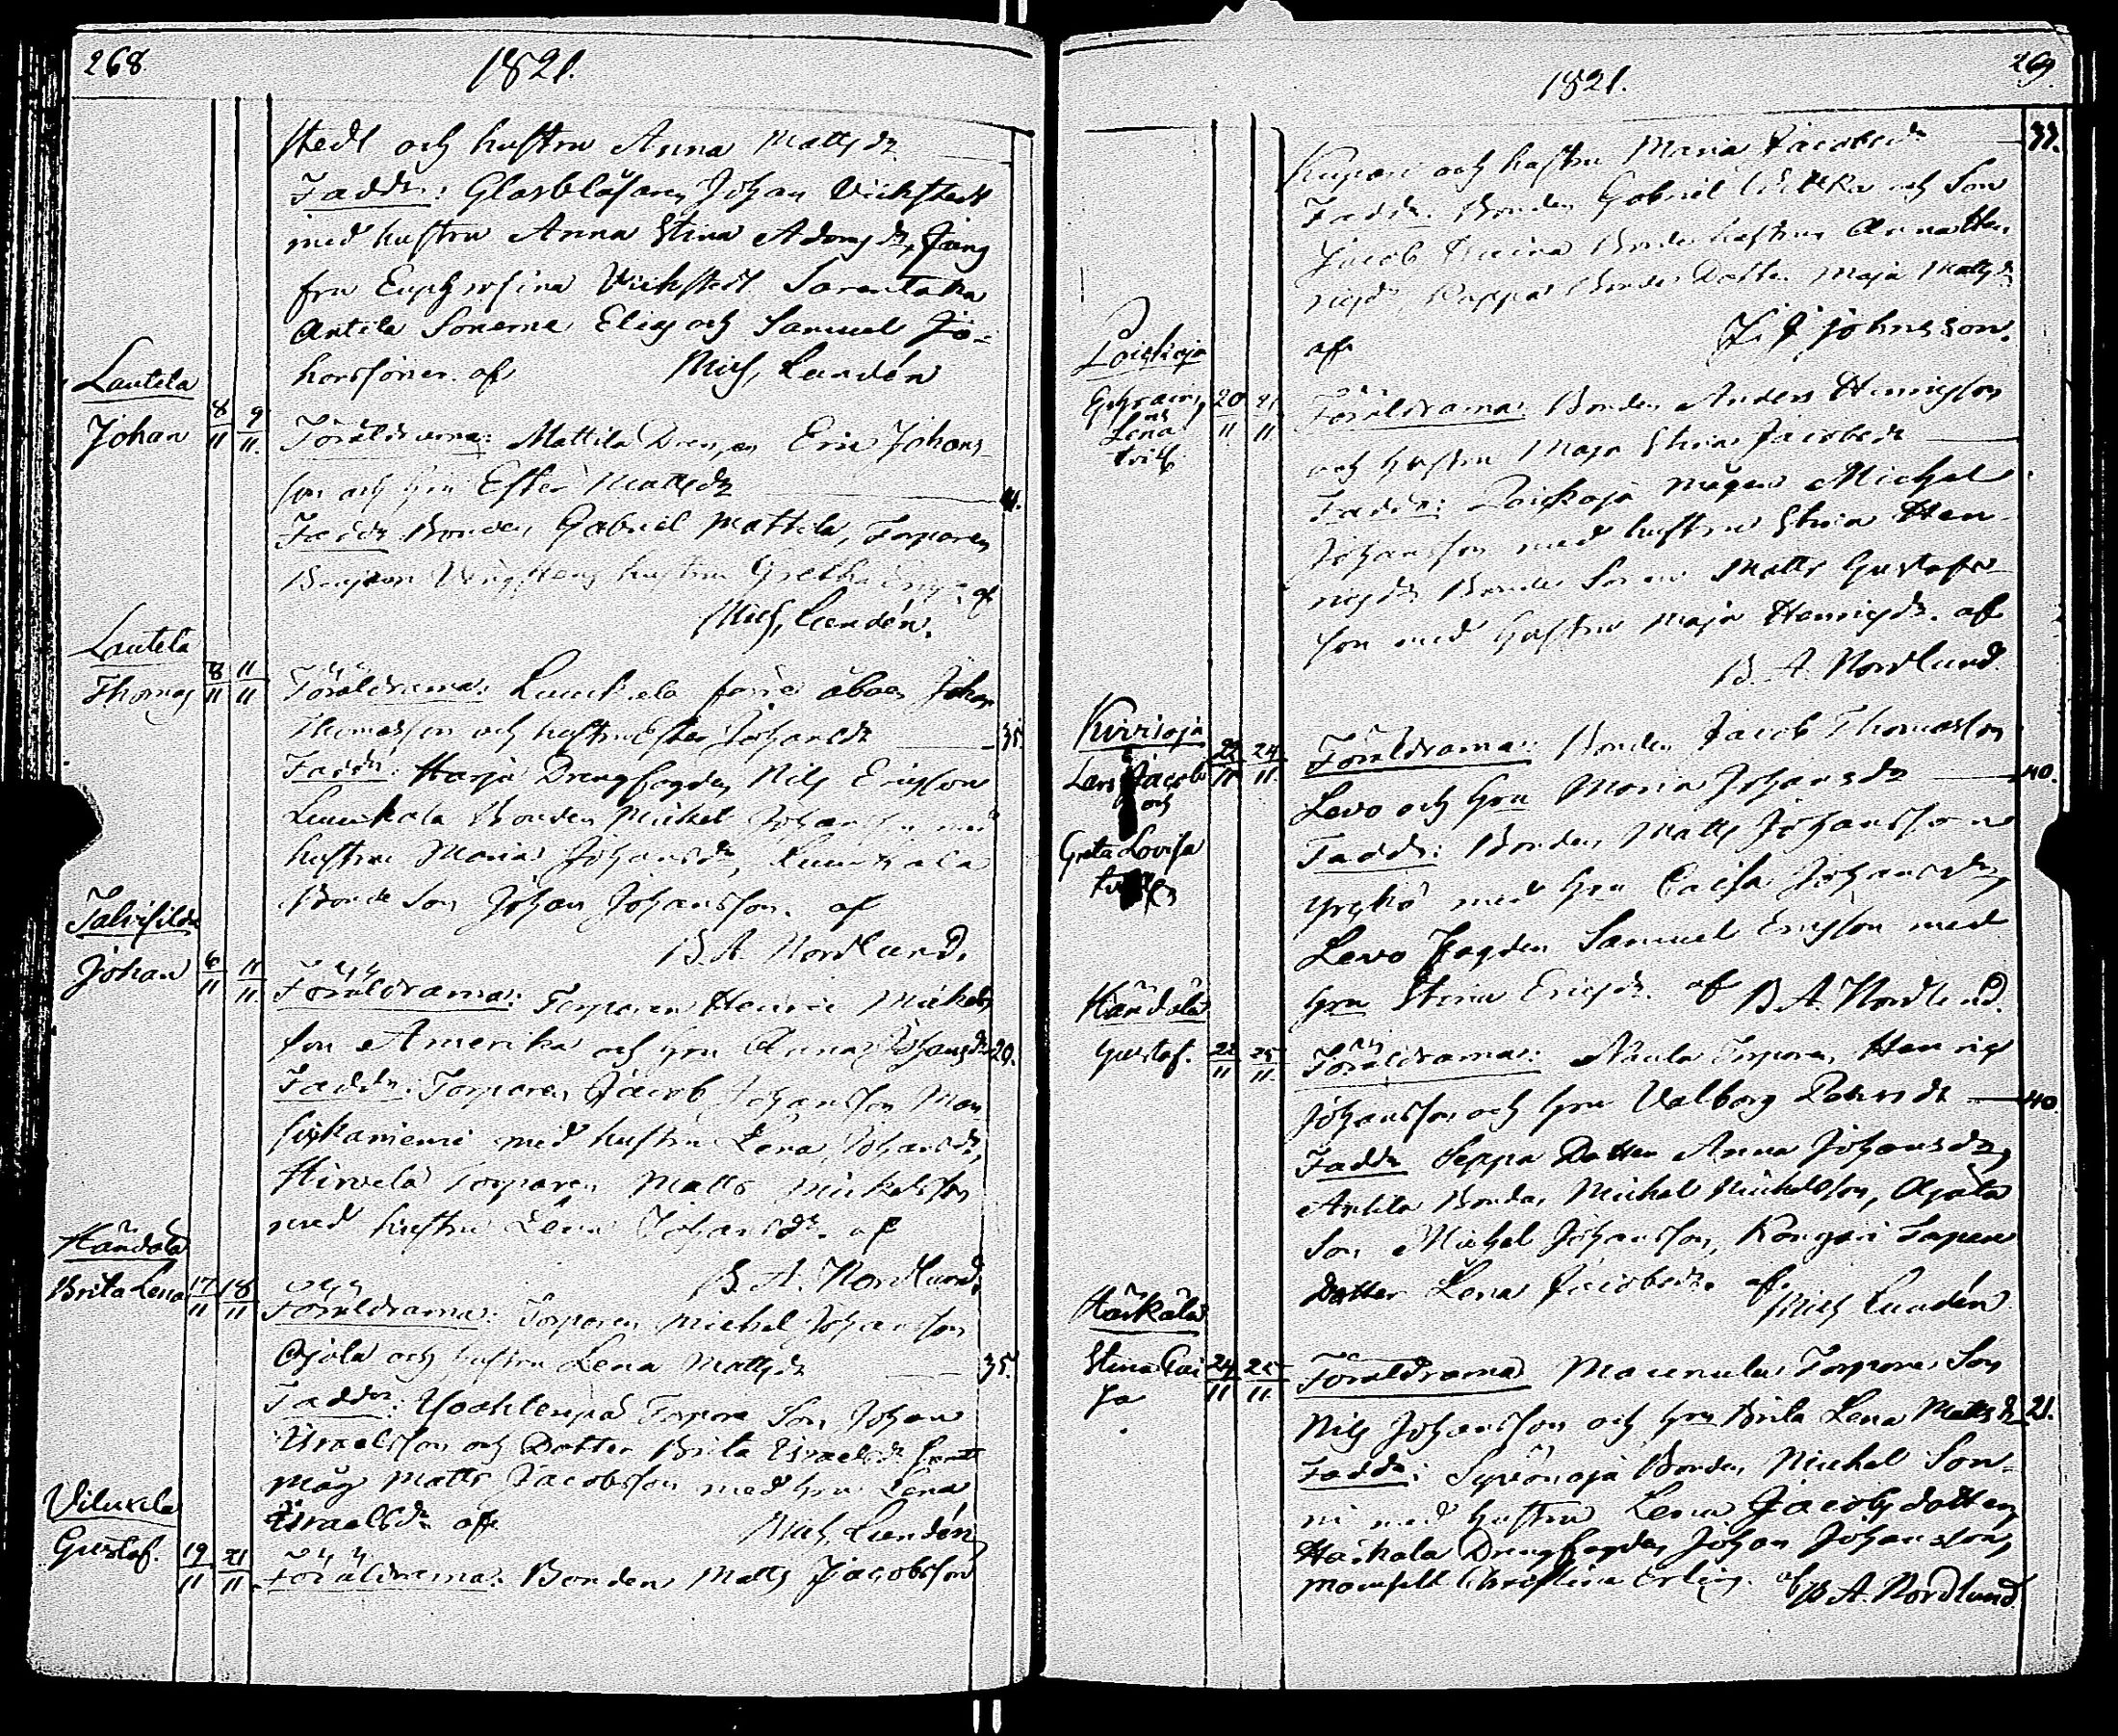 268.
1821.
stedt och hustru Anna Mattsdr
Faddr: Glasblåsaren Johan Vickstedt
med hustru Anna Stina Adamsdr, Jung
fru Euphrosina Vickstedt
Antila Sönerne Elias och Samuel Jo-
hanssöner. af Mich, Lundén
Lautela
Johan 8/11 9/11.
Föräldrarna: Mattila Drengen Eric Johans
son och hru Ester Mattsdr 41.
Faddr Bonden Gabriel Mattila, Torparen
hustru Gretha af
Mich, Lundén.
Lautela
Thomas 8/11 11/11
Föräldrarna: Luukala förre åboen Johan
Thomasson och hustru Ester Johansdr 35.
Faddr: Harja Drengfogden Nils Ericsson
Luukala Bonden Mickel Johansson med
hustru Maria Johansdr, Luukala
Bonde Son Johan Johansson. af
B. A. Nordlund.
Talvisilda
Johan 6/11 11/11.
Föräldrarna: Torparen Henric Mickels
son Amerika och hru Anna Johansdr 20.
Faddr: Torparen Jacob Johansson Man
sikaniemi med hustru Lena Johansdr,
Hirvelä Torparen Matts Mickelsson
med hustru Lena Johansdr. af
B. A. Nordlund.
Händälä
Brita Lena 17/11 18/11
Föräldrarna: Torparen Michel Johansson
Ojala och hustru Lena Mattsdr 35.
Faddr: Torpare Son Johan
Israelsson och Dotter Brita Israelsdr samt
måg Matts Jacobsson med hru Lena
Israelsdr af Mich, Lundén
Viluxela
Gustaf. 19/11 21/11.
Föräldrarna: Bonden Matts Jacobsson
1821.
269.
Kupari och hustru Maria Jacobsdr 33.
Faddr. Bonden Gabriel och Son
Jacob Bonde hustrun Anna Hen
ricsdr Bonde Dotter Maja Mattsdr
af Johnsson.
Loiskoja
Ephraim
och
Lena
tvill. 20/11 21/11.
Föräldrarna: Bonden Anders Henricsson
och hustru Maja Stina Jacobsdr
Faddr: Loiskoja mågen Michel
Johansson med hustru Stina Hen
ricsdr Bonde Sonen Matts Gustafs-
son med hustru Maja Henricsdr. af
B. A. Nordlund
Kivisoja
Lars Jacob
och
Greta Lovisa 22/11 24/11.
Föräldrarna: Bonden Jacob Thomasson
Levo och hru Maria Johansdr 40.
Faddr: Bonden Matts Johansson
Yrjkö med hru Caisa Johansdr,
Levo Fogden Samuel Ericsson med
hru Stina Ericsdr. af B. A. Nordlund.
Händälä
Gustaf. 22/11 25/11.
Föräldrarna: Torparen Henric
Johansson och hru Valborg 40.
Faddr Seppä Dotter Anna Johansdr,
Antila Bonden Michel Mickelsson, Ojala
Son Michel Johansson, Torpare
Dotter Lena Jacobsdr. af
Mich Lundén.
Härkälä
Stina Cai
sa 24/11 25/11
Föräldrarna Maunula Torpare Son
Nils Johansson och hru Brita Lena Mattsdr 21.
Faddr: Syvänoja Bonden Michel Son-
ni med hustru Lena Jacobs dotter,
Härkälä Drengfogden Johan Johansson,
Mamsell Christina Erling. af B. A. Nordlund.